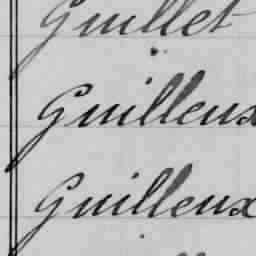 Guillet
Guilleux
Guilleux